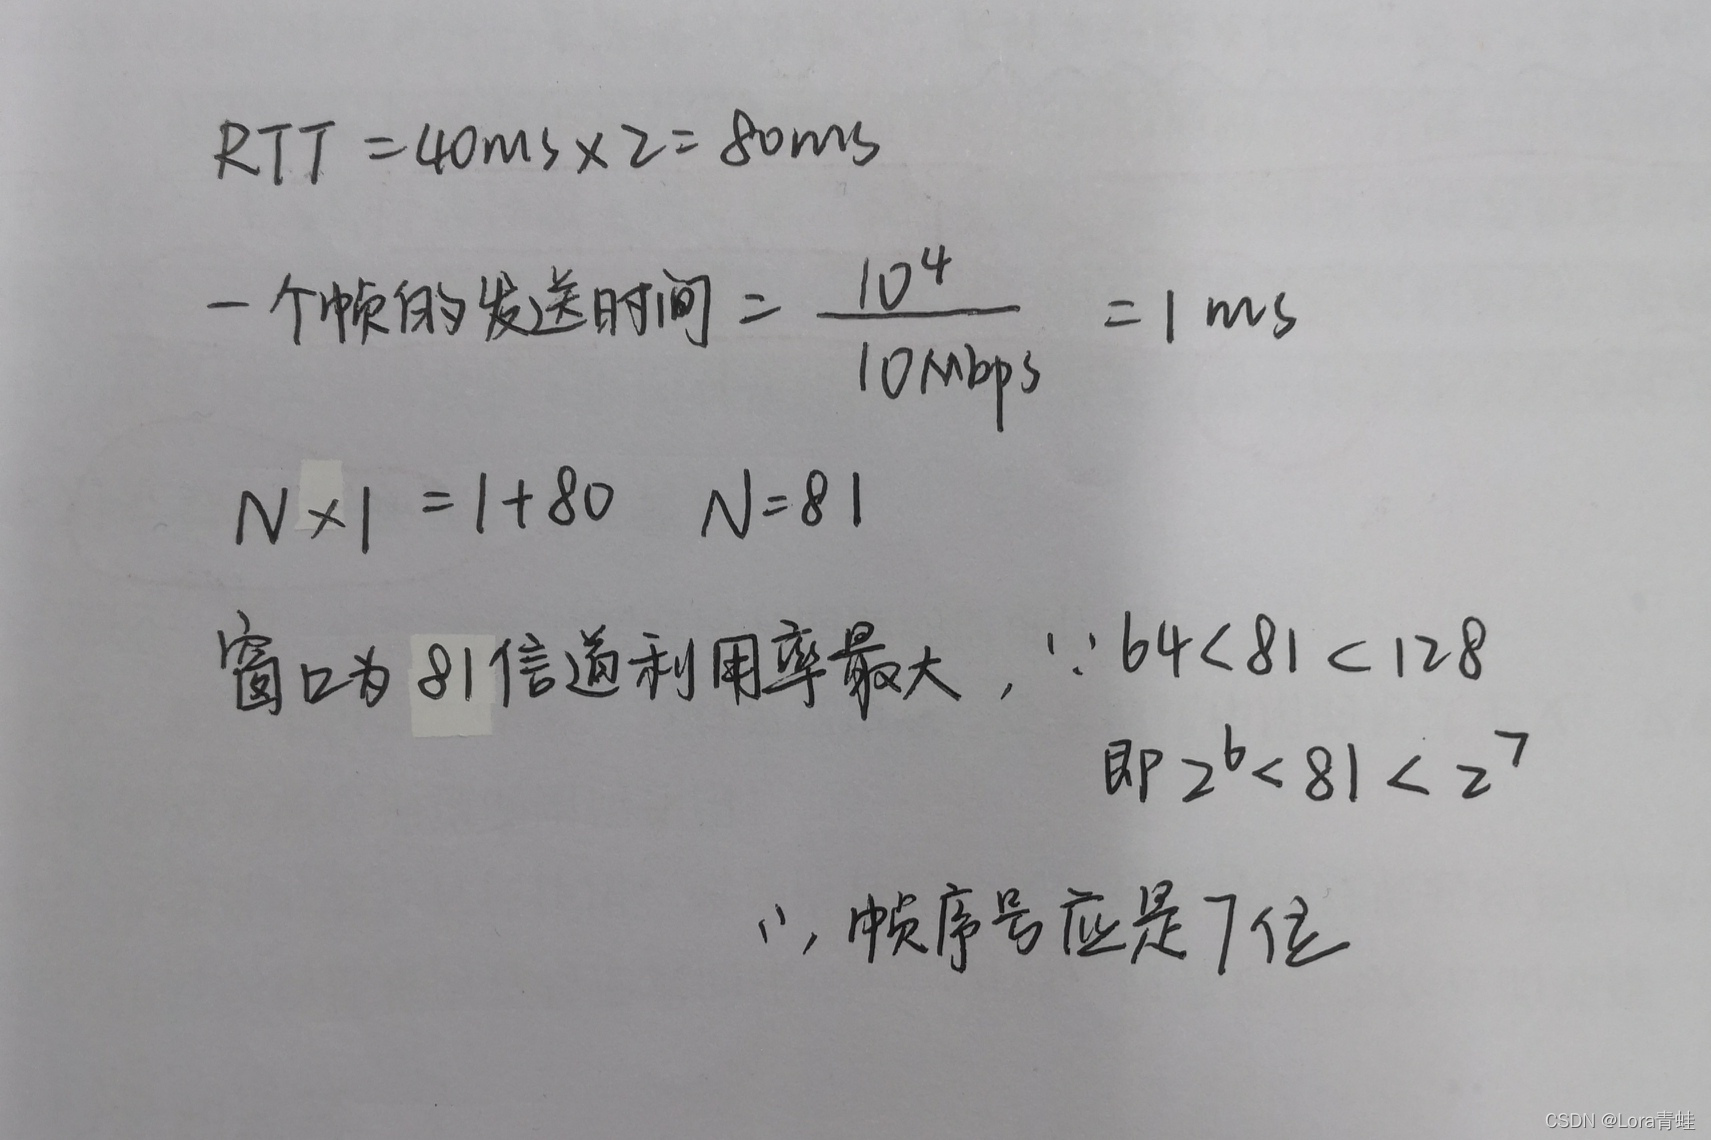 RTT = 40ms × 2 = 80ms
一个帧的发送时间 = 10⁴ / 10Mbps = 1 ms
N × 1 = 1 + 80 N = 81
窗口为81信道利用率最大, ∵ 64 < 81 < 128
即 2⁶ < 81 < 2⁷
∴ 帧序号应是7位
CSDN @Lora青蛙